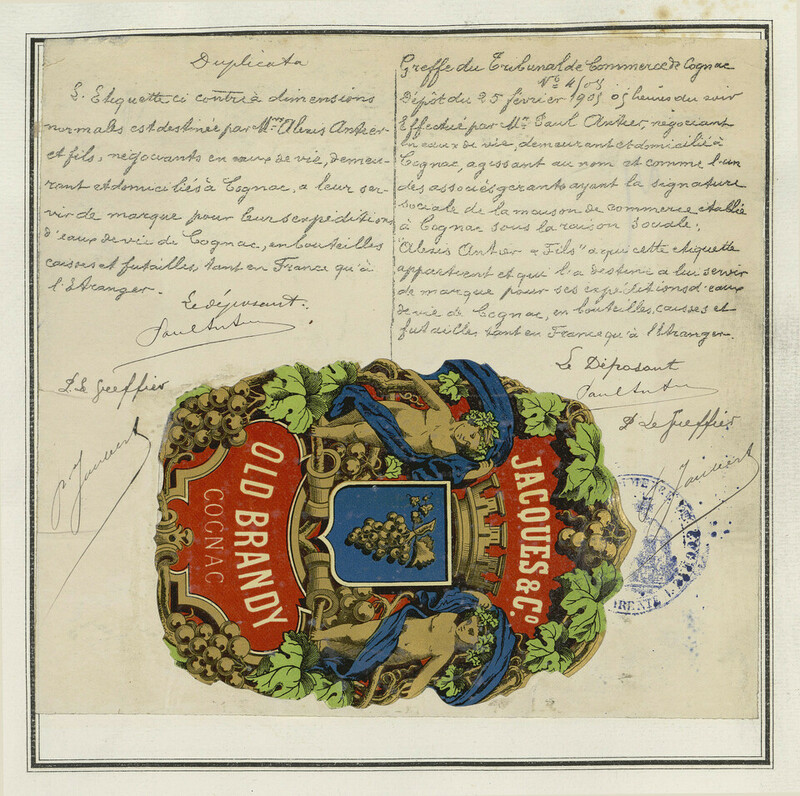 Duplicata
L. Etiquette ci contre à dimensions
normales est destinée par Mrs Alexis Antier
et fils, négociants en eaux de vie, demeu-
rant et domiciliés à Cognac, a leur ser-
vir de marque pour leurs expéditions
d'eaux de vie de Cognac, en bouteilles
caisses et futailles, tant en France qu'à
l'Etranger.
Le déposant:
Paul Antier
P. Le Greffier
p. Jaubert
Greffe du Tribunal de Commerce de Cognac
No
Dépôt du 25 février 1905 à 5 heures du soir
Effectué par Mr Paul Antier, négociant
en eaux de vie, demeurant et domicilié à
Cognac, agissant au nom et comme l'un
des associés gerants ayant la signature
sociale de la maison de commerce etablie
à Cognac sous la raison sociale:
"Alexis Antier & Fils" a qui cette etiquette
appartient et qui l'a destine a lui servir
de marque pour ses expéditions d'eaux
de vie de Cognac, en bouteilles, caisses et
futailles tant en France qu'à l'étranger.
Le Déposant
Paul Antier
P Le Greffier
p. Jaubert
JACQUES & Co
OLD BRANDY
COGNAC